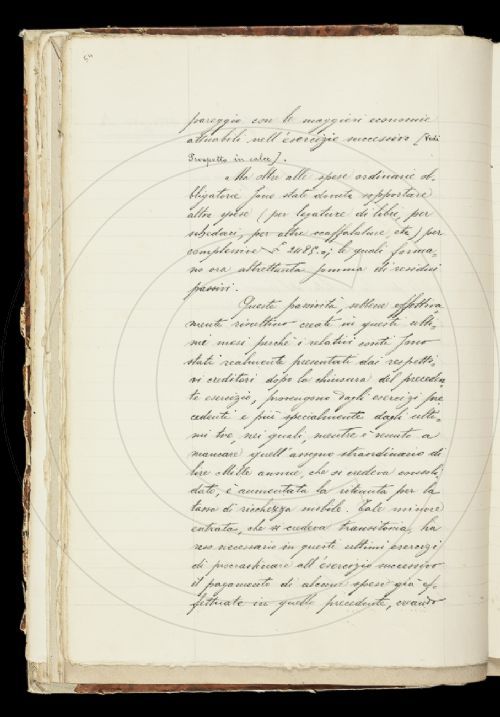 pareggio con le maggiori economie
attuabili nell'esercizio successivo [Vedi
Prospetto in calce].
Ma oltre alle spese ordinarie ob-
bligatorie sono state dovute sopportare
altre spese (per legature di libri, per
sussidi, per altre scaffalature, etc.) per
complessive £ 2485.; le quali forma-
no ora altrettanta somma di residui
passivi.
Queste passività, sebbene effettiva-
mente risultino create in questi ulti-
mi mesi perché i relativi conti sono
stati realmente presentati dai rispetti-
vi creditori dopo la chiusura del preceden-
te esercizio, provengono dagli esercizi pre-
cedenti e più specialmente dagli ulti-
mi tre, nei quali, mentre è venuto a
mancare quell'assegno straordinario di
lire Mille annue, che si credeva consoli-
dato, è aumentata la ritenuta per la
tassa di ricchezza mobile. Tale minore
entrata, che si credeva transitoria, ha
reso necessario in questi ultimi esercizi
di procrastinare all'esercizio successivo
il pagamento di alcune spese già ef-
fettuate in quello precedente, creando